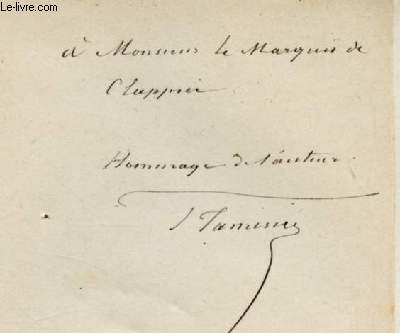 Le-livre.com
à Monsieur le Marquis de
Clappier
Hommage de l'auteur